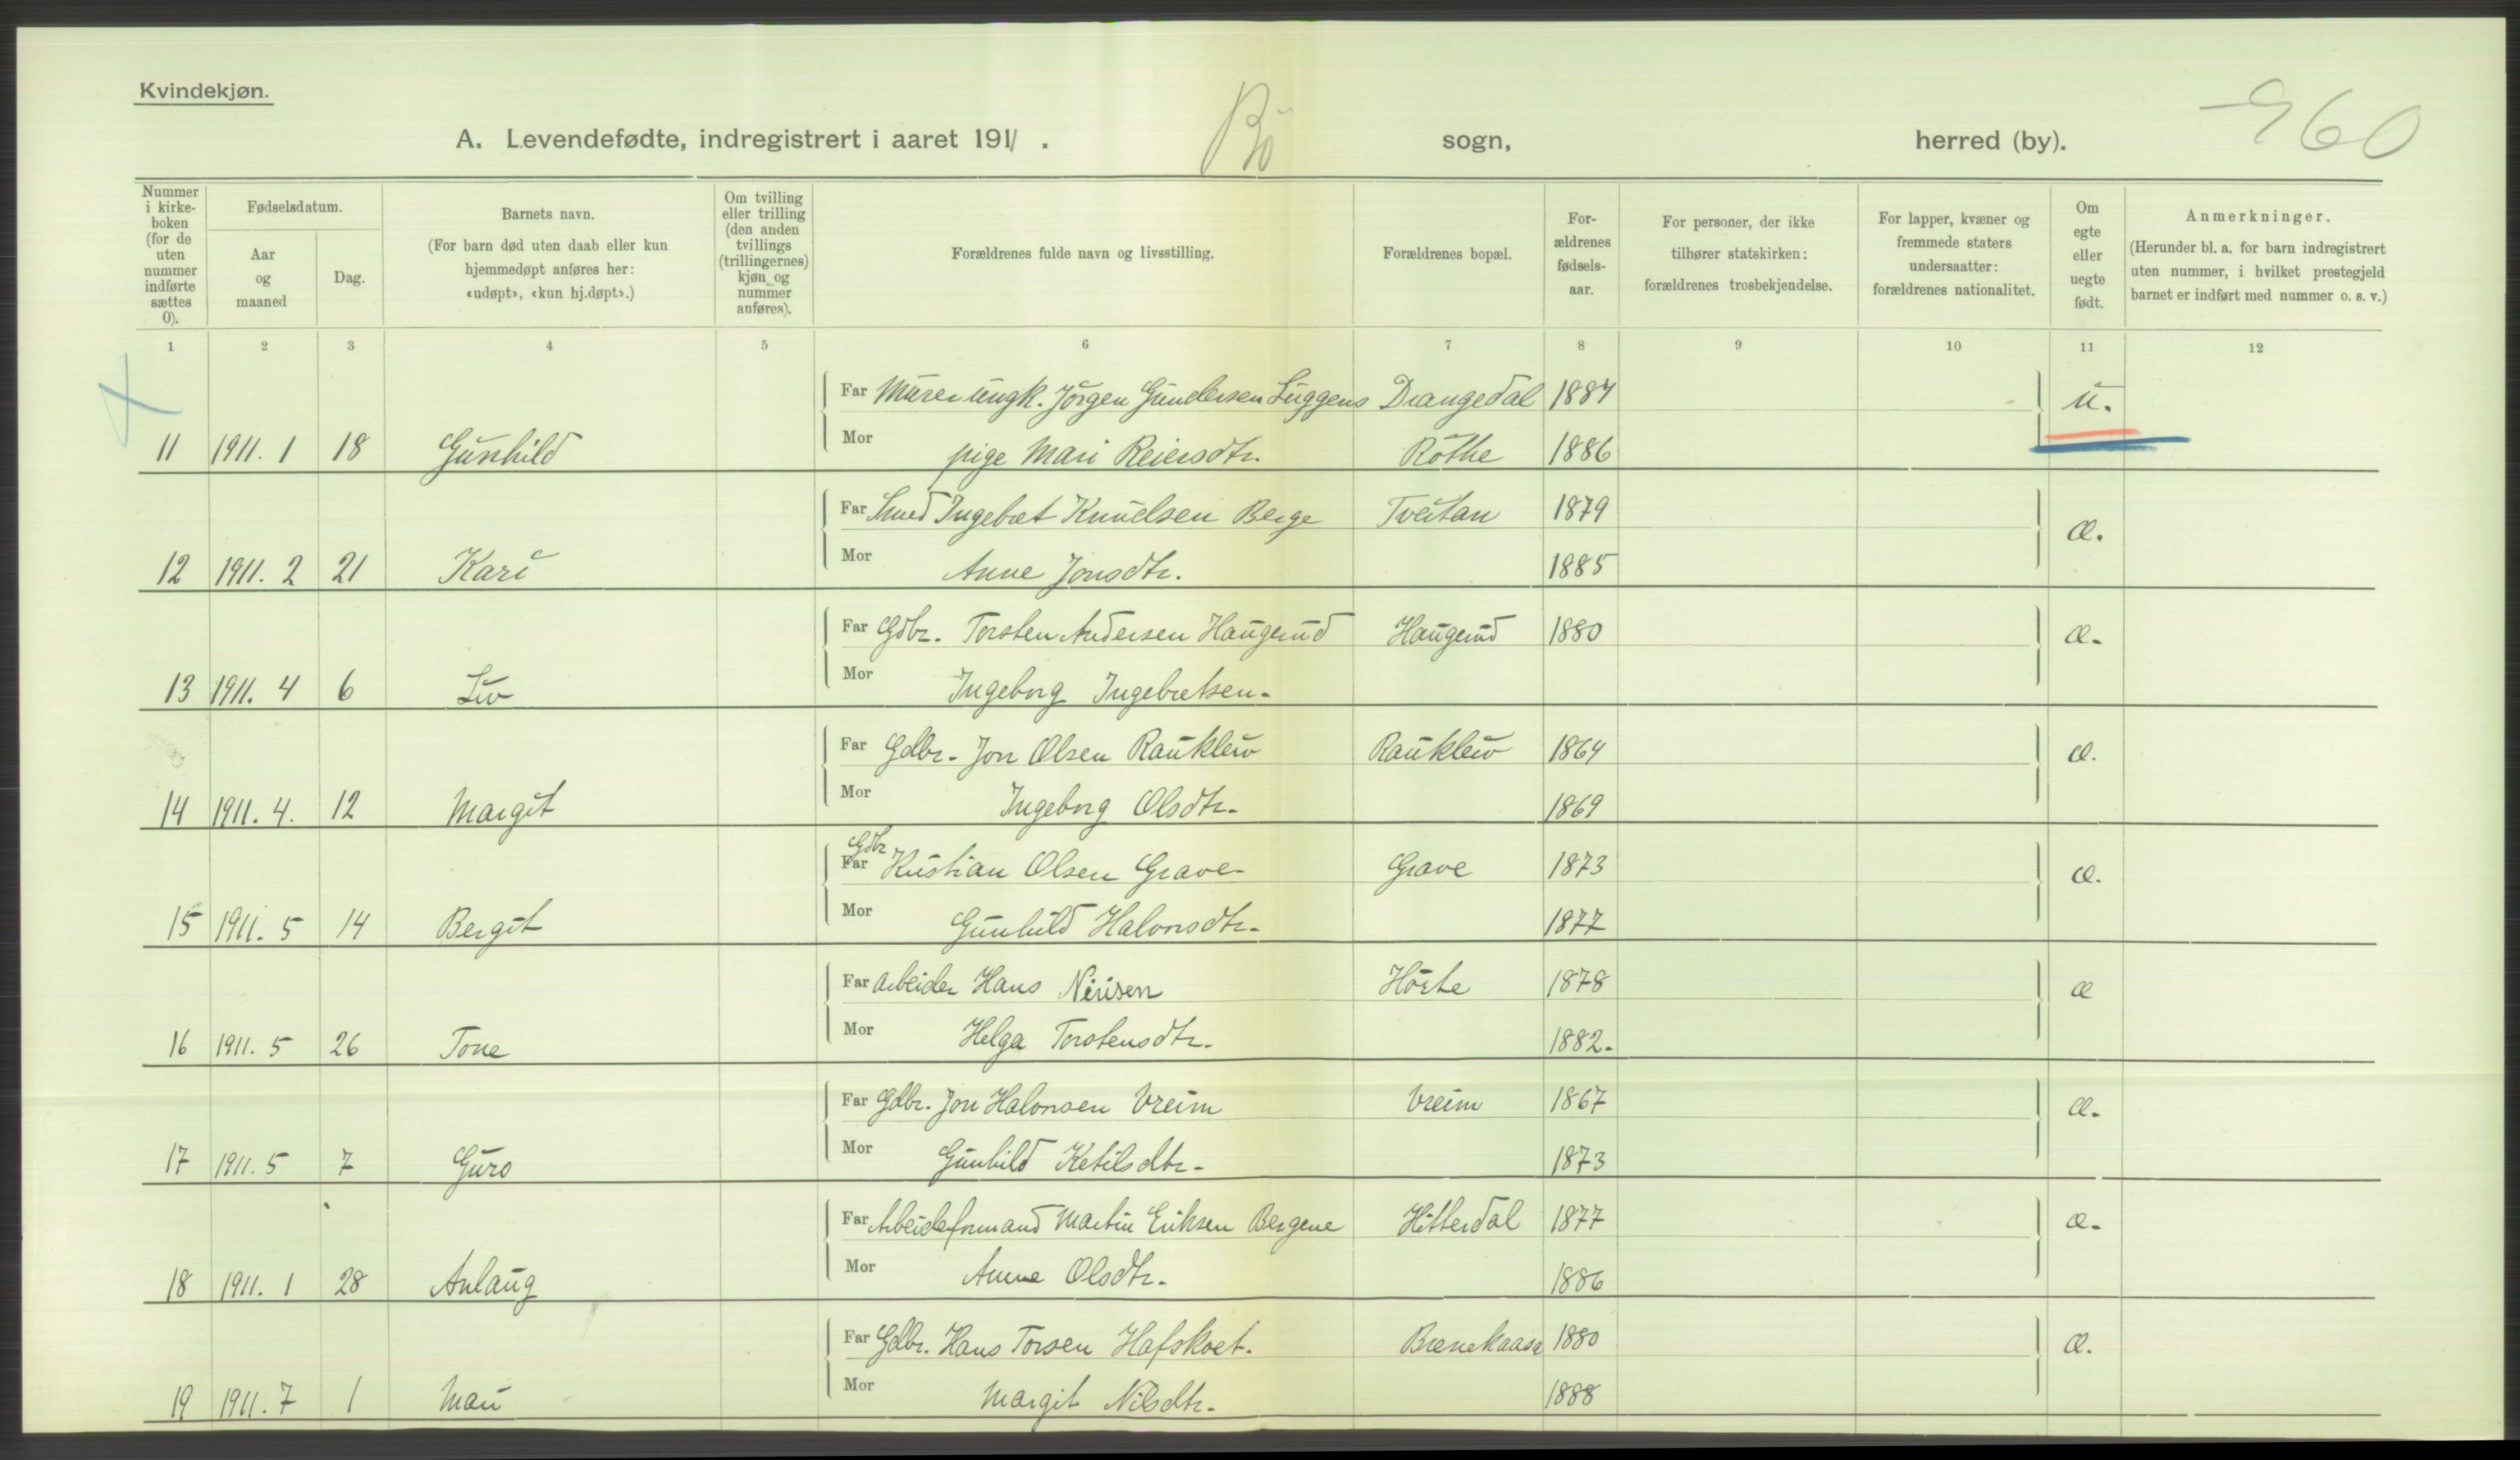 Kvindekjøn.
A. Levendefødte, indregistrert i aaret 1911. Bö sogn, herred (by). 960
Nummer i kirkeboken (for de uten nummer indførte sættes 0).
Fødselsdatum.
Aar og maaned
Dag.
Barnets navn.
(For barn død uten daab eller kun hjemmedøpt anføres her: «udøpt», «kun hj.døpt».)
Om tvilling eller trilling (den anden tvillings (trillingernes) kjøn og nummer anføres).
Forældrenes fulde navn og livsstilling.
Forældrenes bopæl.
Forældrenes fødselsaar.
For personer, der ikke tilhører statskirken: forældrenes trosbekjendelse.
For lapper, kvæner og fremmede staters undersaatter: forældrenes nationalitet.
Om egte eller uegte født.
Anmerkninger.
(Herunder bl. a. for barn indregistrert uten nummer, i hvilket prestegjeld barnet er indført med nummer o. s. v.)
1 2 3 4 5 6 7 8 9 10 11 12
Far Murer ungk. Jörgen Gundersen Luggens Drangedal 1884 u.
11 1911. 1 18 Gunhild Mor pige Mari Reiersdtr. Röthe 1886
Far Smed Ingebret Knudsen Berge Tveitan 1879 æ.
12 1911. 2 21 Kari Mor Anne Jonsdtr. 1885
Far Gdbr. Torsten Andersen Haugerud Haugerud 1880 æ.
13 1911. 4 6 Liv Mor Ingeborg Ingebretsen.
Far Gdbr. Jon Olsen Raukleiv Raukleiv 1864 æ.
14 1911. 4. 12 Margit Mor Ingeborg Olsdtr. 1869
Far Gdbr Kristian Olsen Grave Grave 1873 æ.
15 1911. 5 14 Bergit Mor Gunhild Halvorsdtr. 1877
Far Arbeider Hans Nirisen Hörte 1878 æ
16 1911. 5 26 Tone Mor Helga Torstensdtr. 1882.
Far Gdbr. Jon Halvorsen Vreim Vreim 1867 æ.
17 1911. 5 7 Guro Mor Gunhild Ketilsdtr. 1873
Far Arbeidsformand Martin Eriksen Bergene Hitterdal 1877 æ.
18 1911. 1 28 Anlaug Mor Anne Olsdtr. 1886
Far Gdbr. Hans Torsen Hafskoet. Brenekaasa 1880 æ.
19 1911. 7 1 Mari Mor Margit Nilsdtr. 1888